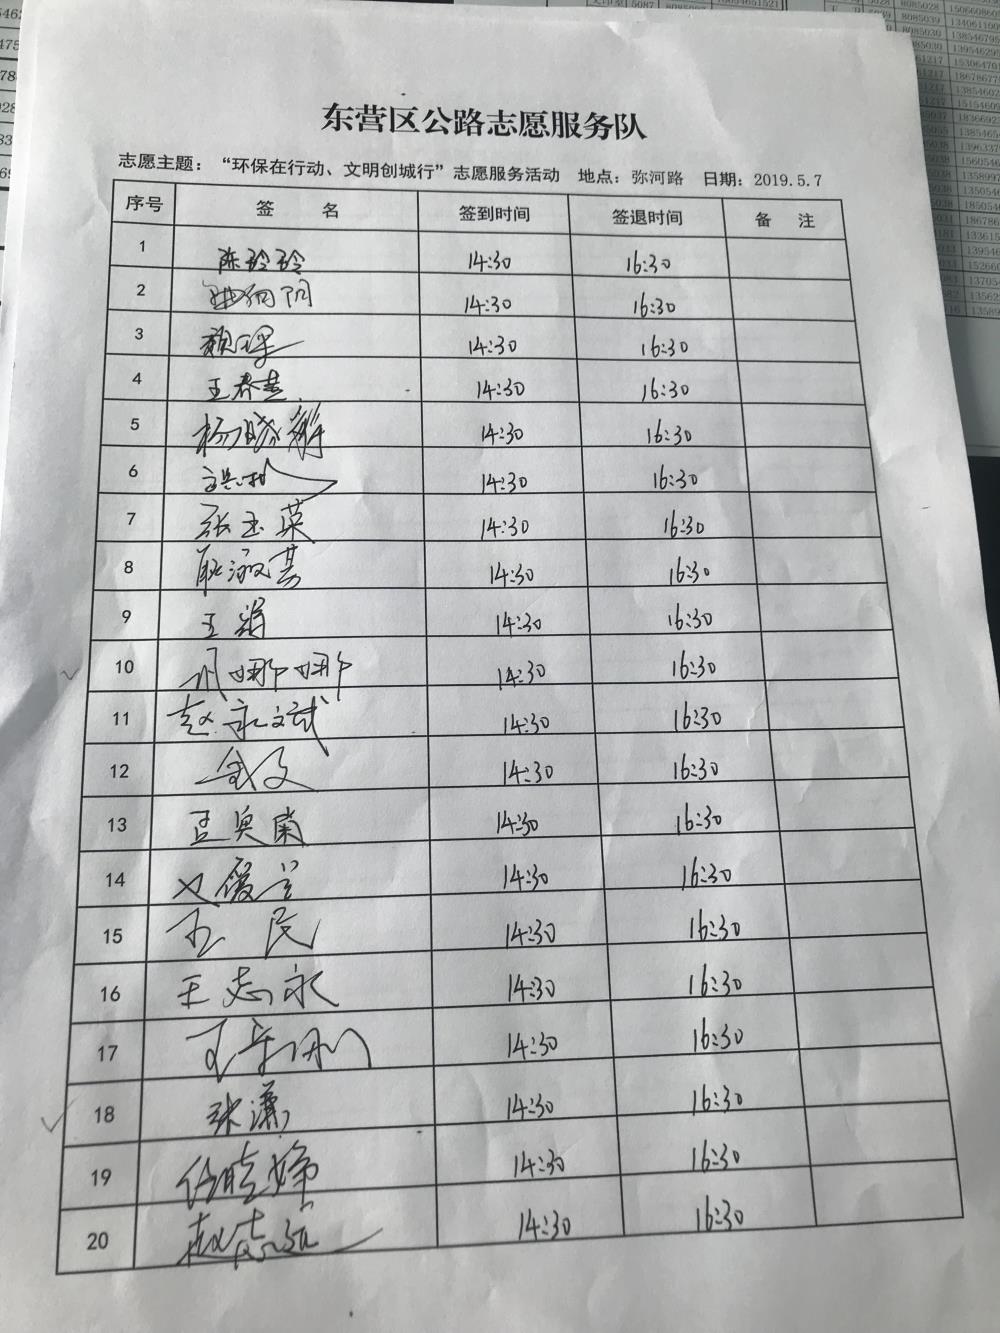 东营区公路志愿服务队
志愿主题：“环保在行动、文明创城行”志愿服务活动 地点：弥河路 日期：2019.5.7
序号 签 名 签到时间 签退时间 备 注
1 陈玲玲 14:30 16:30
2 14:30 16:30
3 14:30 16:30
4 王春燕 14:30 16:30
5 杨晓 14:30 16:30
6 14:30 16:30
7 张玉英 14:30 16:30
8 耿淑芸 14:30 16:30
9 王娟 14:30 16:30
10 娜娜 14:30 16:30
11 赵永斌 14:30 16:30
12 14:30 16:30
13 孟奥 14:30 16:30
14 14:30 16:30
15 民 14:30 16:30
16 王志永 14:30 16:30
17 14:30 16:30
18 张潇 14:30 16:30
19 任晓婷 14:30 16:30
20 赵志 14:30 16:30